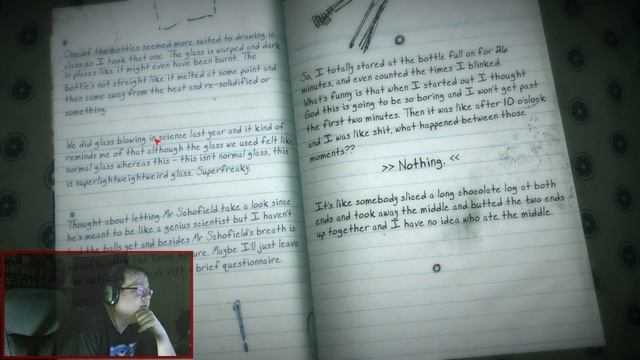 One of the bottles seemed more suited to drawing in
class so I took that one. The glass is warped and dark
in places like it might even have been burnt. The
bottle's not straight like it melted at some point and
then came away from the heat and re-solidified or
something.
We did glass blowing in science last year and it kind of
reminds me of that although the glass we used felt like
normal glass whereas this - this isn't normal glass, this
is superlightweightweird glass. Superfreaky.
Thought about letting Mr Schofield take a look since
he's meant to be like a genius scientist but I haven't
had the balls yet and besides Mr Schofield's breath is
ure. Maybe I'll just leave
with a brief questionnaire.
So, I totally stared at the bottle full on for 26
minutes, and even counted the times I blinked.
What's funny is that when I started out I thought
God this is going to be so boring and I won't get past
the first two minutes. Then it was like after 10 o'clock
and I was like shit, what happened between those
moments??
>> Nothing. <<
It's like somebody sliced a long chocolate log at both
ends and took away the middle and butted the two ends
up together and I have no idea who ate the middle.